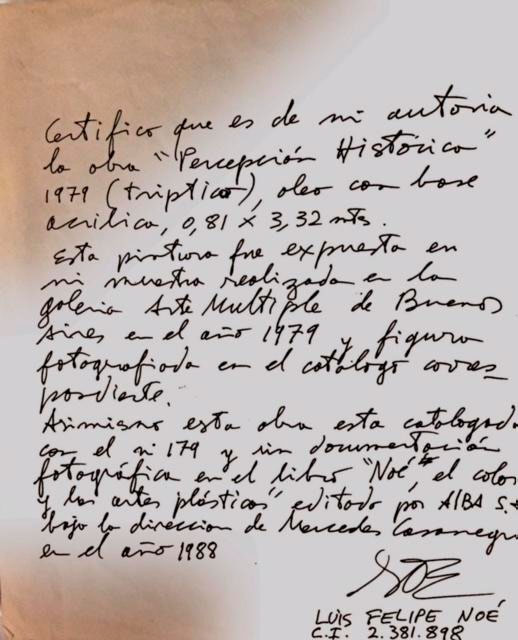 Certifico que es de mi autoria
la obra "Percepción Histórica"
1979 (triptico), oleo con base
acrílica, 0,81 x 3,32 mts.
Esta pintura fue expuesta en
mi muestra realizada en la
galeria Arte Multiple de Buenos
Aires en el año 1979 y figura
fotografiada en el catálogo corres_
pondiente.
Asimismo esta obra esta catalogada
con el nº 179 y sin documentación
fotográfica en el libro "Noé, el color
y las artes plásticas" editado por ALBA S.
bajo la direccion de Mercedes Casanegra
en el año 1988
NOE
LUIS FELIPE NOÉ
C.I. 2.381.898